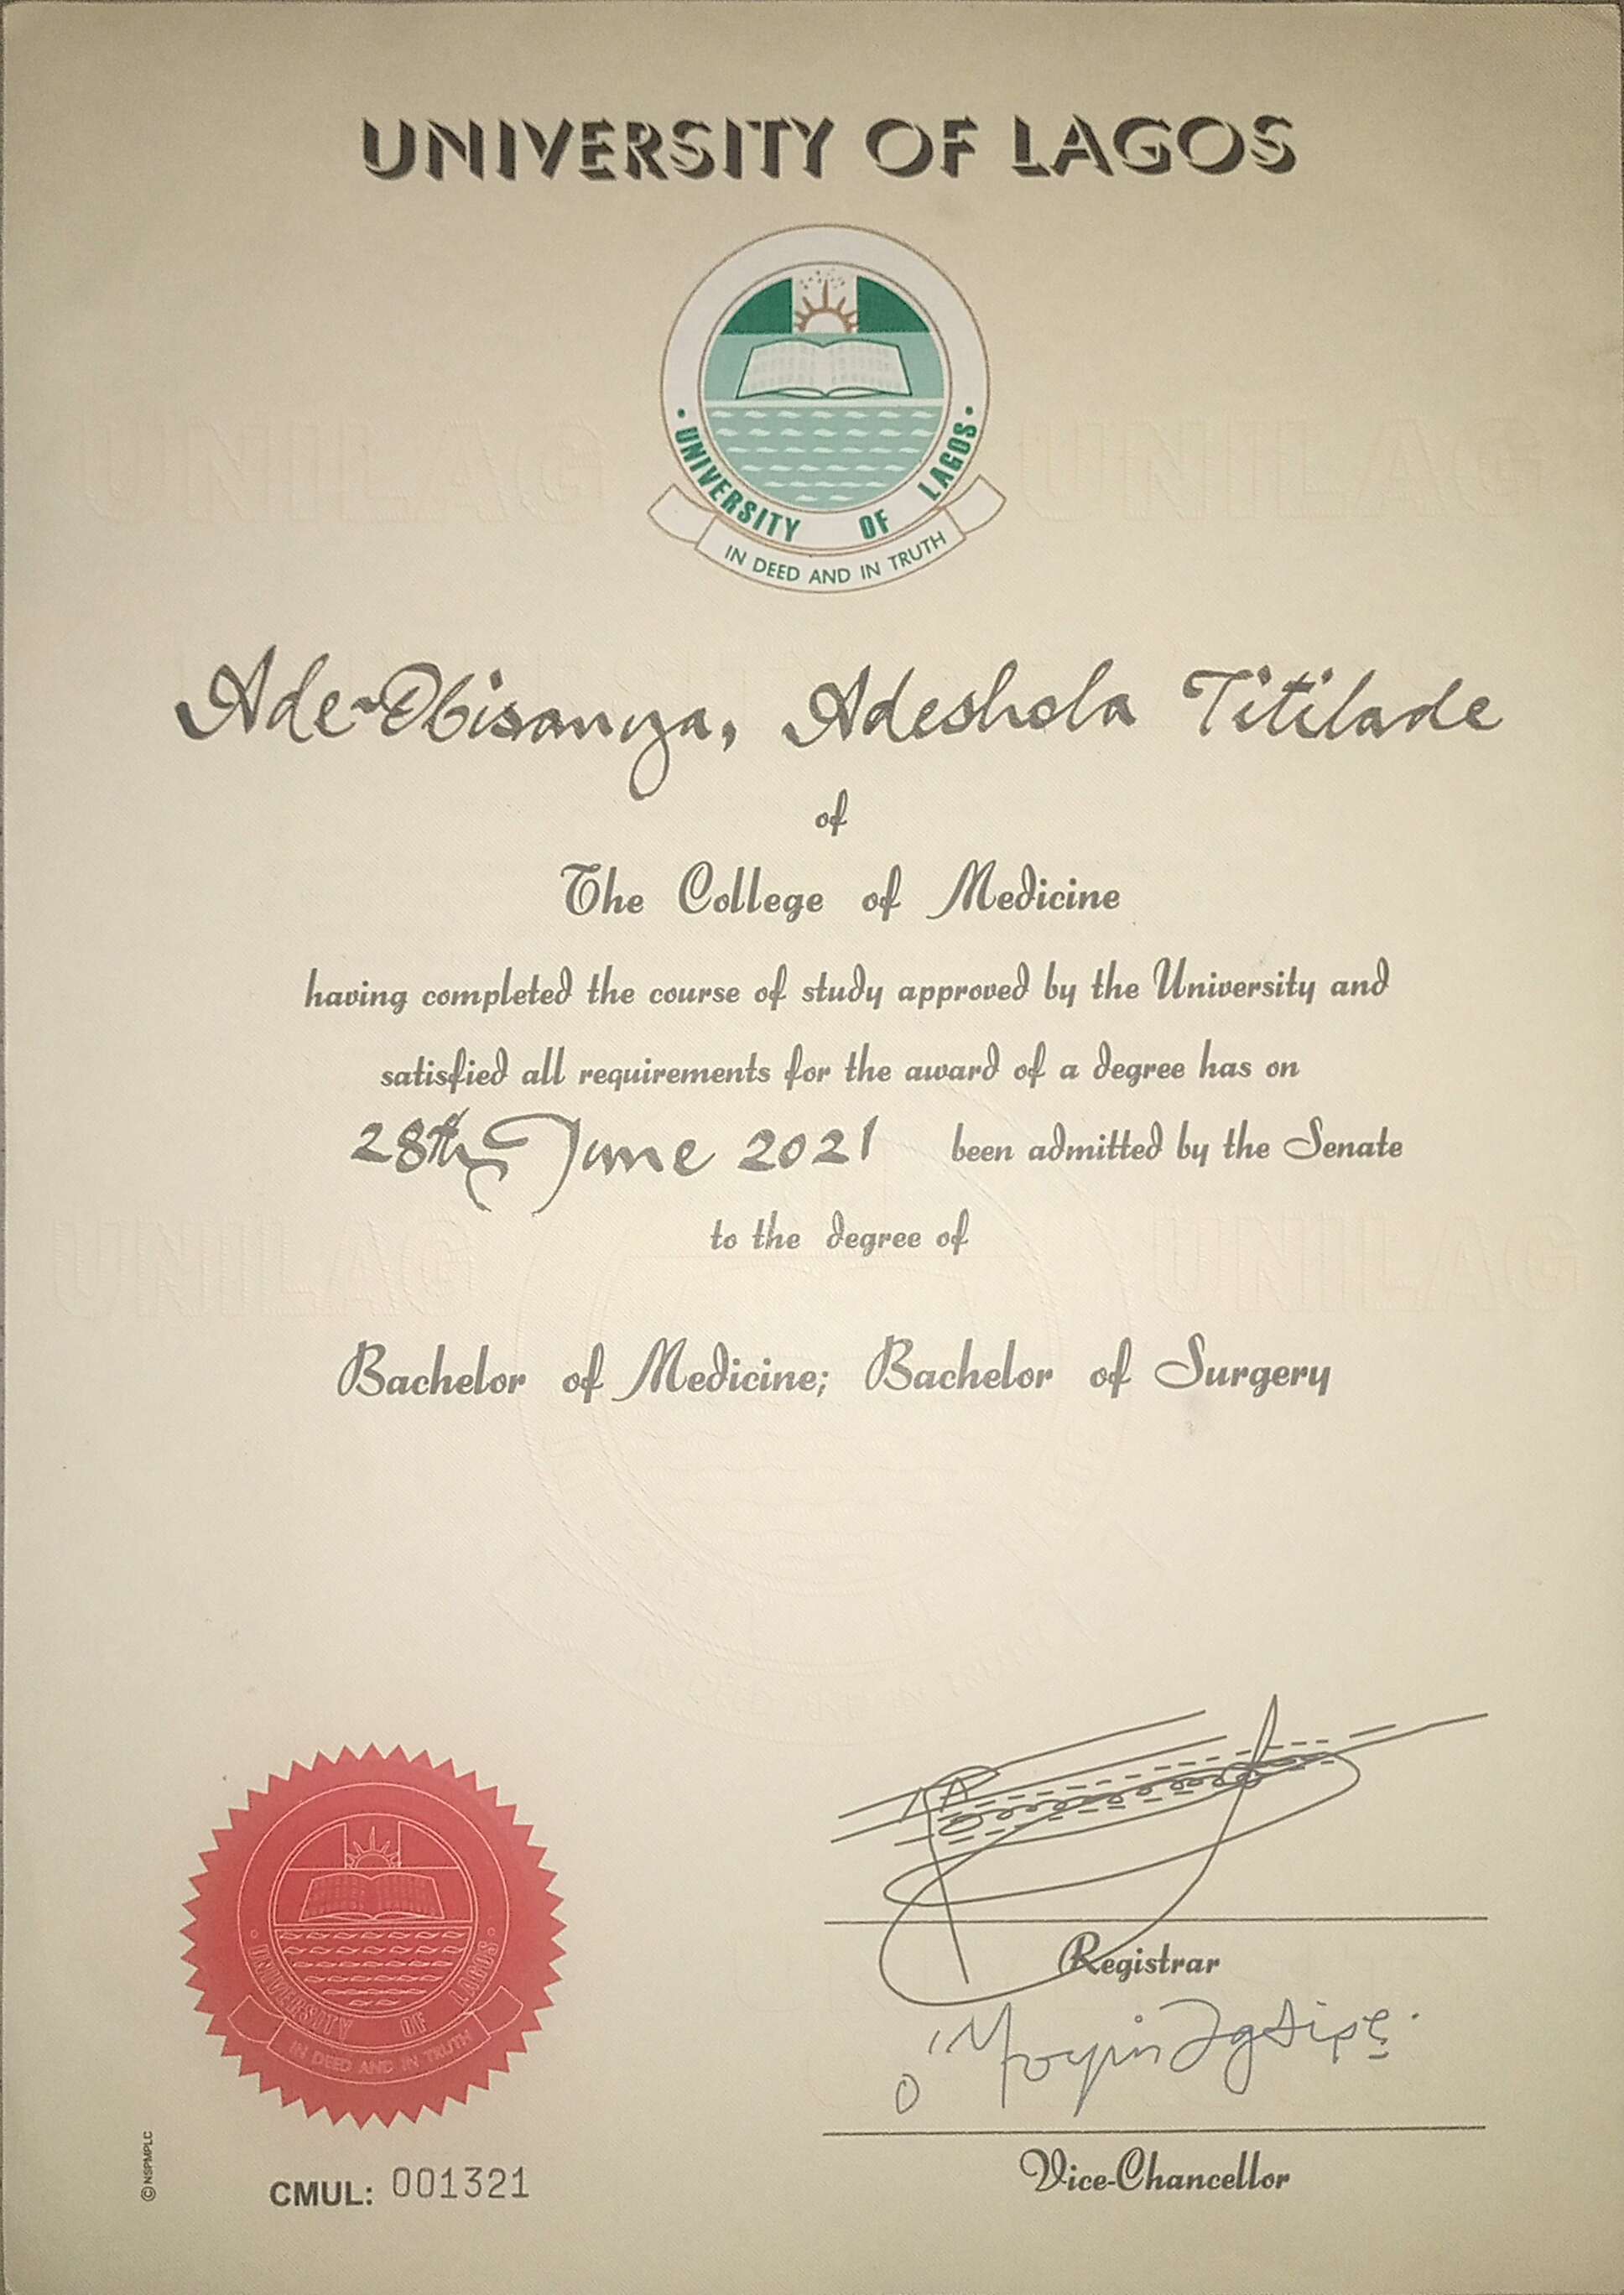 UNIVERSITY OF LAGOS
• UNIVERSITY OF LAGOS •
IN DEED AND IN TRUTH
UNILAG UNILAG
Ade-Obisanya, Adeshola Titilade
of
The College of Medicine
having completed the course of study approved by the University and
satisfied all requirements for the award of a degree has on
28th June 2021 been admitted by the Senate
to the degree of
UNILAG UNILAG
Bachelor of Medicine; Bachelor of Surgery
• UNIVERSITY OF LAGOS •
IN DEED AND IN TRUTH
Registrar
Vice-Chancellor
CMUL: 001321
© NSPMPLC